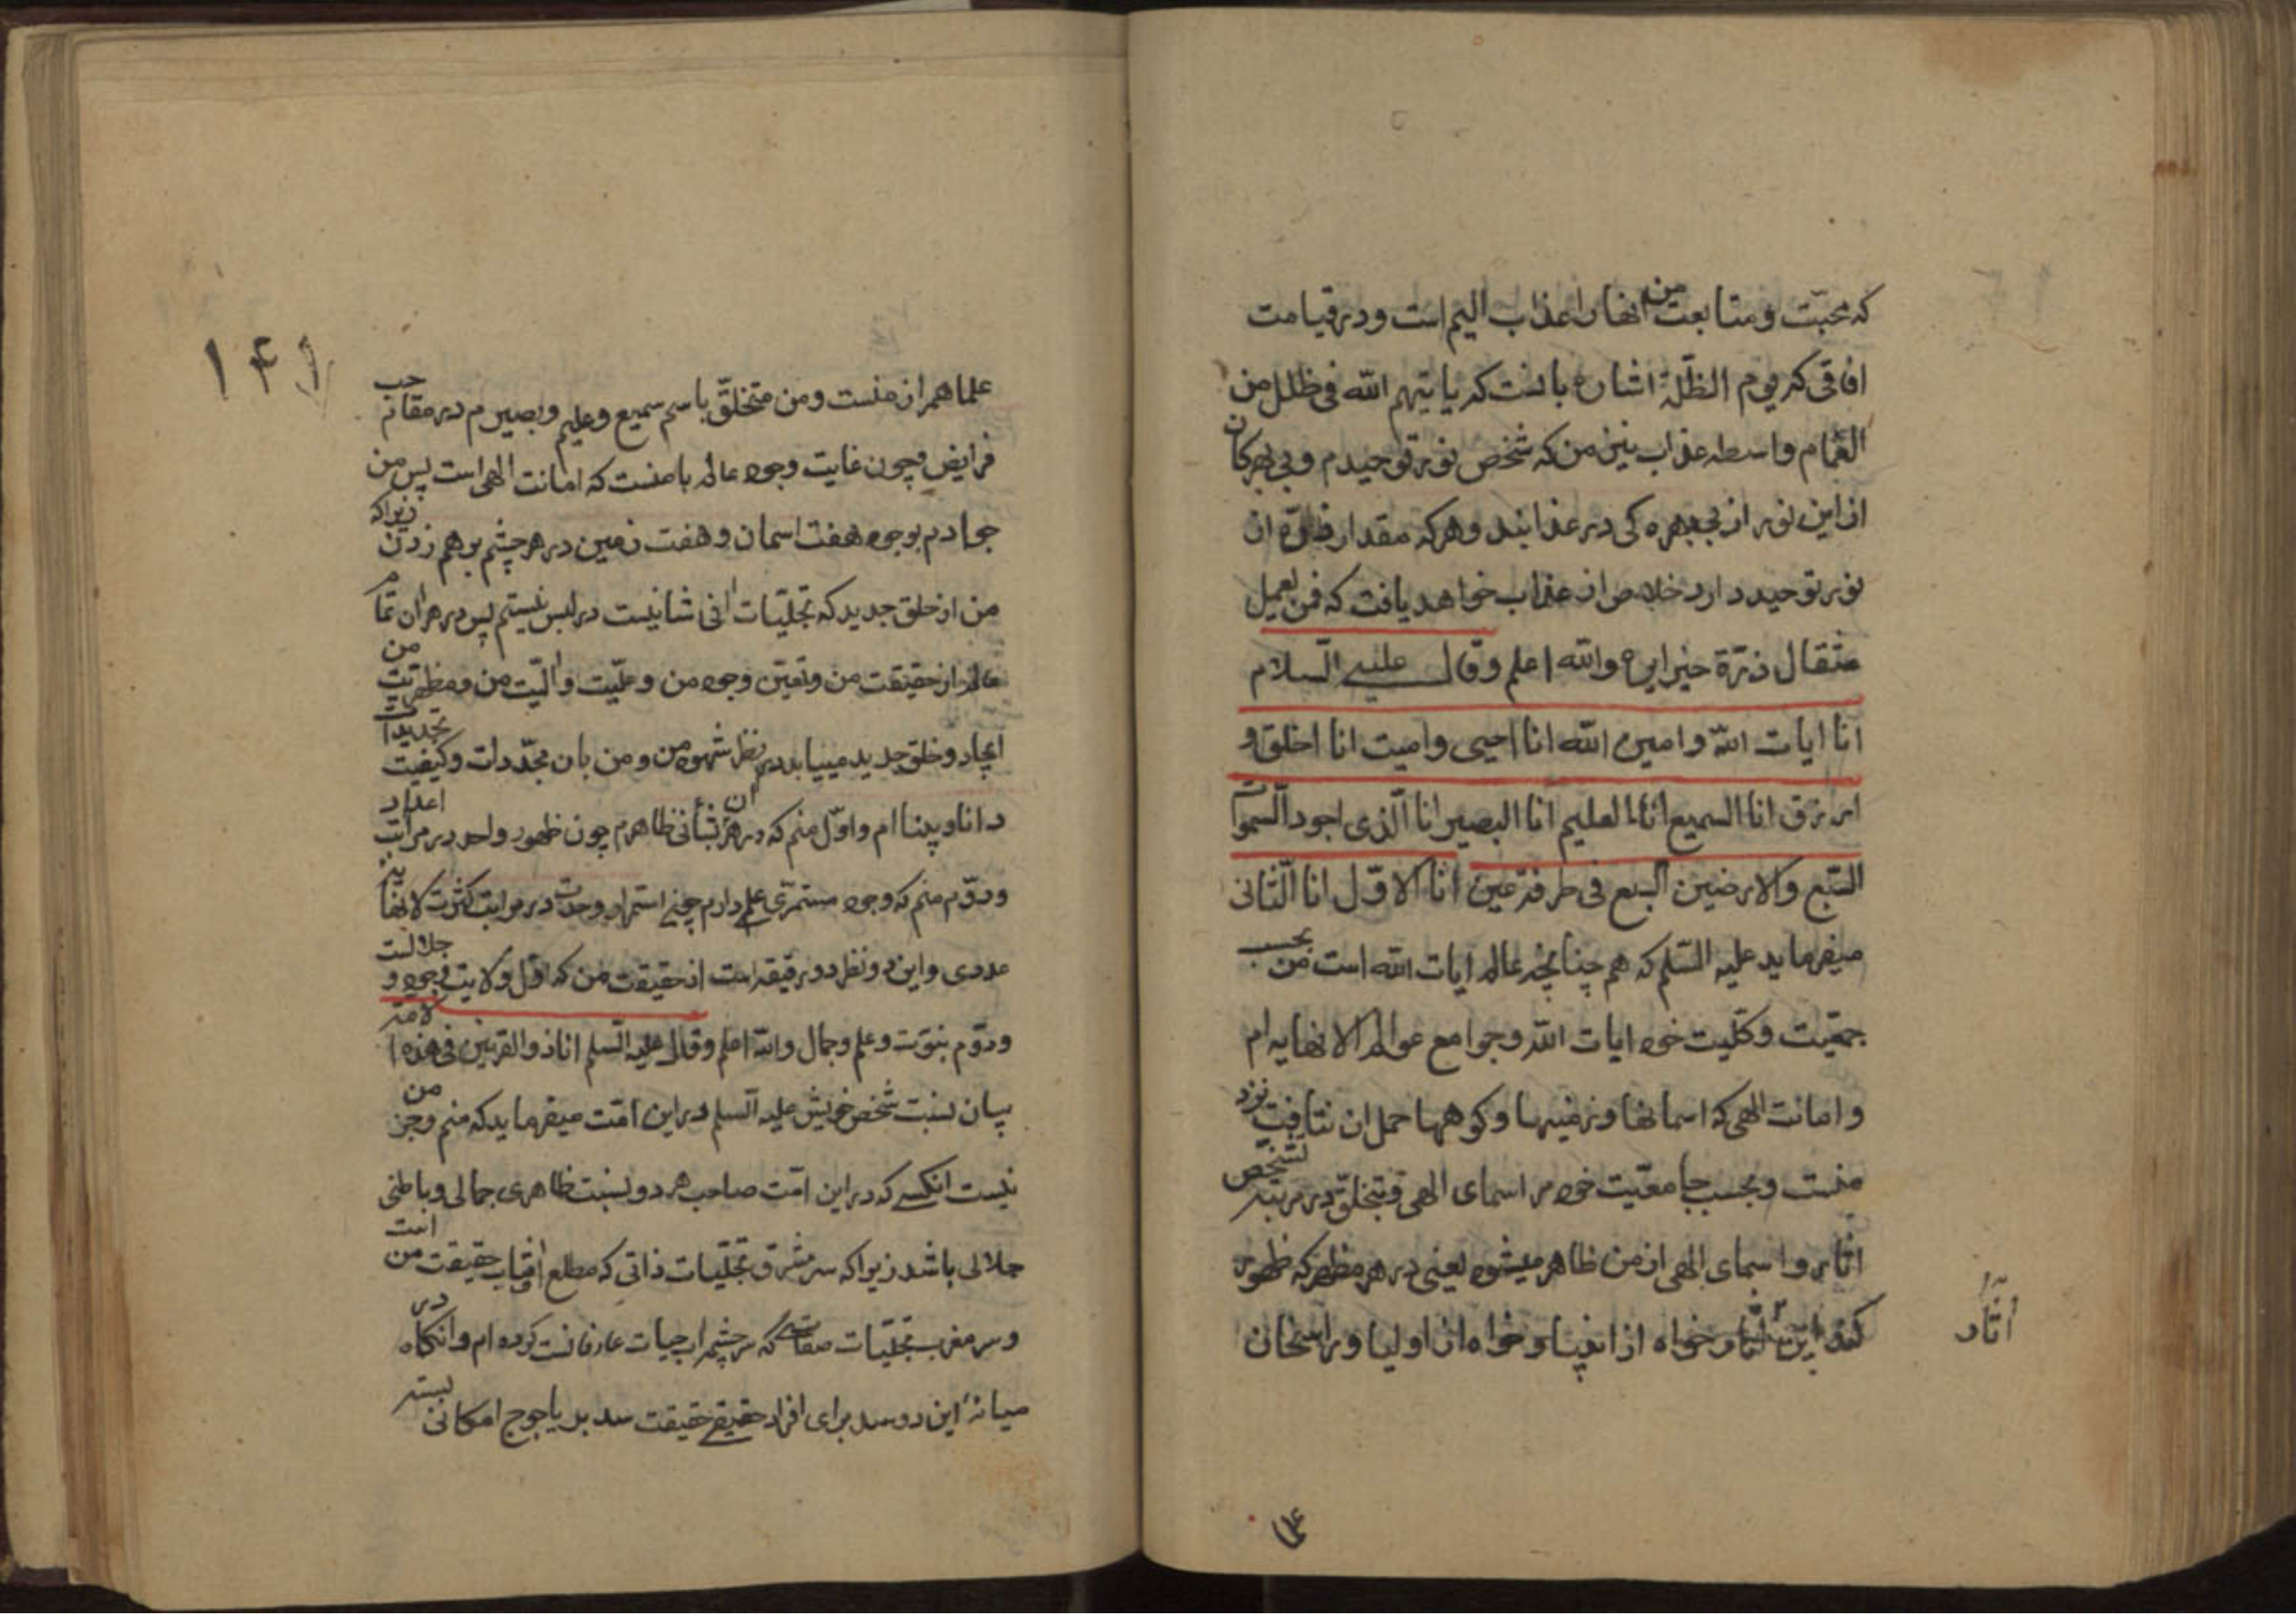 که محبّت و متابعت من انها را عذاب الیم است و در قیامت
افاقی که یوم الظلّة اشاره بانست که یاتیهم الله فی ظلل من
الغمام واسطه عذاب نیز من که شخص نور توحیدم و بی بهرکان
از این نور از بی بهره کی در عذابند و هر که مقدار ذرّه از
نور توحید دارد خلاص از عذاب خواهد یافت که فمن یعمل
مثقال ذرّة خیرا یره والله اعلم وقال علیه السّلام
انا ایات الله وامین الله انا احیی وامیت انا اخلق و
ارزق انا السمیع انا العلیم انا البصیر انا الّذی اجود السّموات
السّبع والارضین السبع فی طرفة عین انا الاوّل انا الثّانی
میفرماید علیه السّلم که هم چنانچه عالم ایات الله است من بحسب
جمعیّت و کلّیت خود ایات الله و جوامع عوالم لا نهایه ام
و امانت الهی که اسمانها و زمینها و کوهها حمل ان نتافت نزد
منست و بحسب جامعیّت خود مر اسمای الهی و تخلّق در مرتبه تشخّص
اثار و اسمای الهی از من ظاهر میشود یعنی در هر مظهر که ظهور
کند این اثار خواه از انبیا و خواه از اولیا و راسخان
اثار
۱۴۱
علما همه از منست و من متخلّق باسم سمیع و علیم و بصیرم در مقام حب
فرایض و چون غایت وجود عالم با منست که امانت الهی است پس من
جوادم بوجود هفت اسمان و هفت زمین در هر چشم بر هم زدن زیرا که
من از خلق جدید که تجلّیات انی شانیست در لبس نیستم پس در هر ان تمام
عالم از حقیقت من و تعیّن وجود من و علّیت و الّیت من و مظهریّت من
ایجاد و خلق جدید مییابد در نظر شهود من و من بان مجّددات و کیفیت تجدیدات
دانا و بینا ام و اوّل منم که در هر ان بشأنی ظاهرم چون ظهور واحد در مراتب اعداد
و دوّم منم که وجود مستمرّی علی دارم چنی استمرار وحدت در مراتب کثرت لا نهایه
عددی و این دو نظر دو رقیقه است از حقیقت من که اوّل ولایت وجود و جلالست
و دوّم نبوّت و علم و جمال والله اعلم وقال علیه السّلم انا ذو القرنین فی هذه الامّة
بیان نسبت شخص خویش علیه السلم در این امّت میفرماید که منم و جز من
نیست انکسی که در این امّت صاحب هر دو نسبت ظاهری جمالی و باطنی
جلالی باشد زیرا که سر مشرق تجلّیات ذاتی که مطلع افتاب حقیقت من است
و سر مغرب تجلّیات صفاتی که سر چشمه اب حیات عارفانست کرده ام و انکاه در
میانهٔ این دو سد برای افراد حقیقی حقیقت سد بر یاجوج امکانی بسته